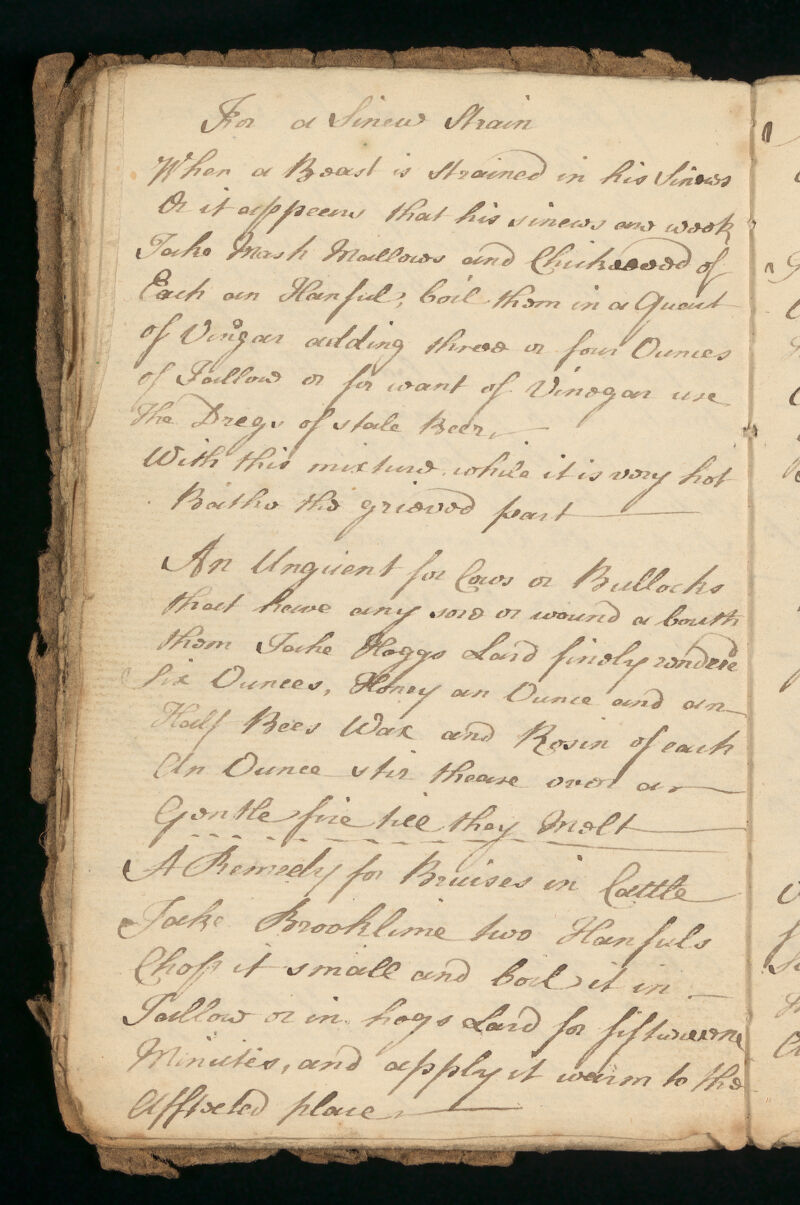 For a Sinew Strain
When a Beast is strained in his Sinews
Or it appeers that his sinews are week
Take Mash Mallows and Chickweed of
Each an Hanful, boil them in a Quart
of Vingar adding three or four Ounces
of Tallow or for want of Vinegar use
the Dregs of stale Beer,
With this mixture while it is very hot
Bathe the grieved part
An Unguent for Cows or Bullocks
that have any sore or wound a bouth
them Take Hoggs Lard finely rendered
Six Ounces, Honey an Ounce and an
Half Bees Wax and Rosin of each
An Ounce stir thease over a
Gentle fire till they Melt
A Remedy for Bruises in Cattle
Take Brooklime two Hanfuls
Chop it small and boil it in
Tallow or in hogs Lard for
Minutes, and apply it warm to the
Affected place